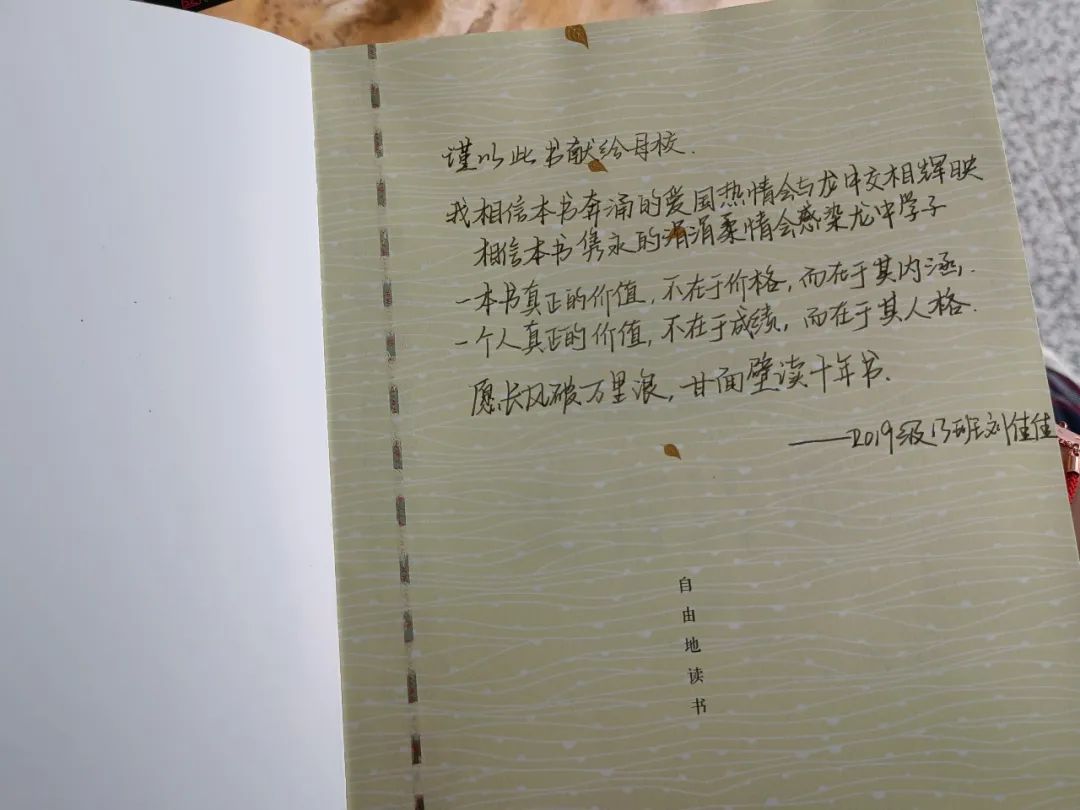 谨以此书献给母校.
我相信本书奔涌的爱国热情会与龙中交相辉映
相信本书隽永的涓涓柔情会感染龙中学子
一本书真正的价值,不在于价格,而在于其内涵,
一个人真正的价值,不在于成绩,而在于其人格.
愿长风破万里浪,甘面壁读十年书.
——2019级13班刘佳佳
自由地读书